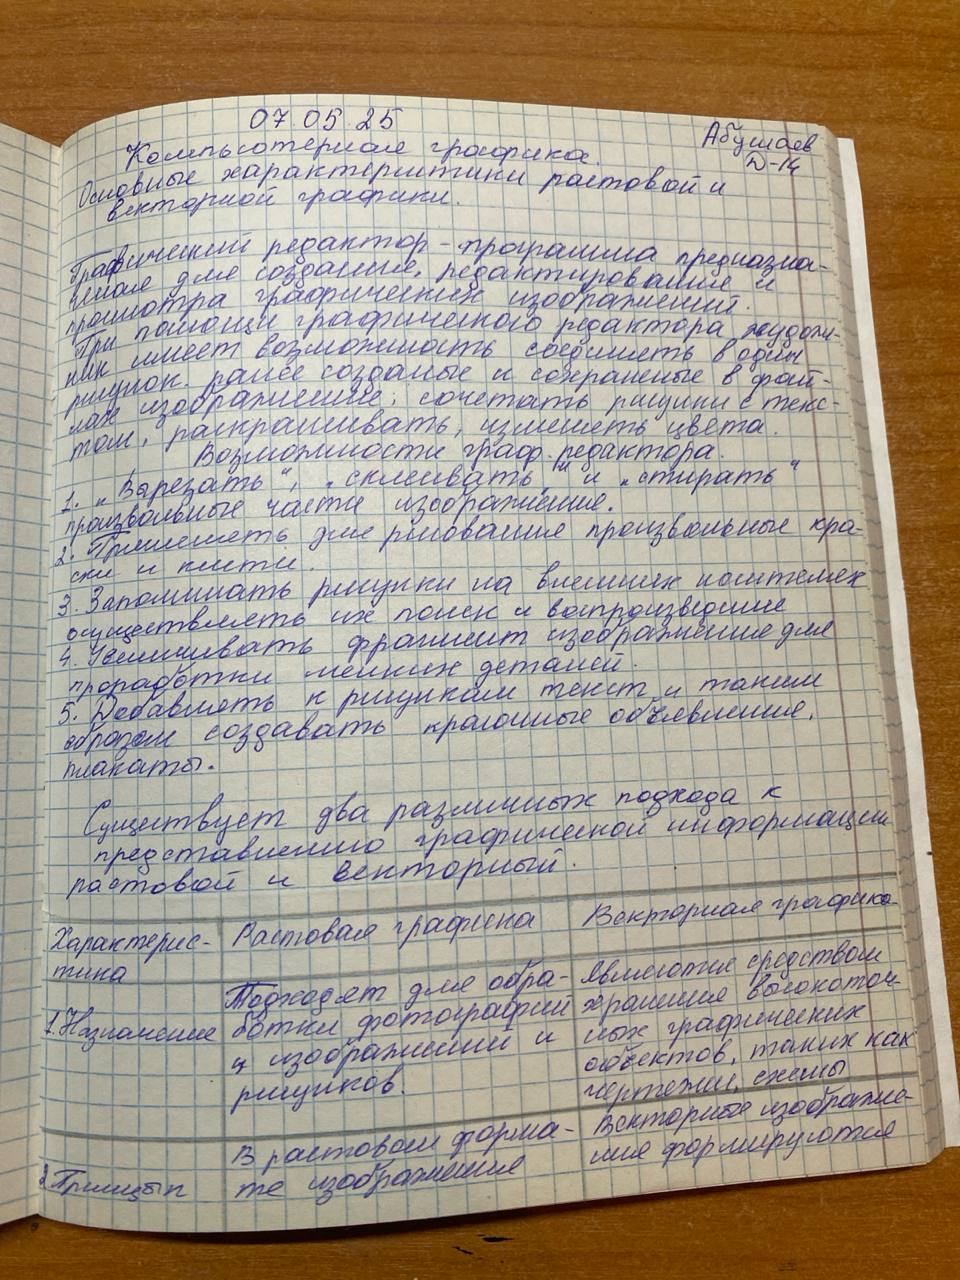 07.05.25
Абушаев
Д-14
Компьютерная графика.
Основные характеристики растовой и
векторной графики.
Графический редактор - программа предназна-
ченая для создания, редактирование и
просмотра графических изображений.
При помощи графического редактора художн-
ик имеет возможность соединеть в один
рисунок ранее созданые и сохраненые в фай-
лах изображение, сочетать рисунки с текс-
том, раскрашивать, изменеть цвета.
Возможности граф. редактора.
1. „Вырезать", „склеивать" и „стирать"
произвольные части изображение.
2. Применеть для рисование произвольные кра-
ски и кисти.
3. Запоминать рисунки на внешних носителех
осуществлеть их поиск и воспроизведение
4. Увеличивать фрагмент изображение для
проработки мелких деталей.
5. Добавлеть к рисункам текст и таким
образом создавать красочные объевление,
плакаты.
Существует два различных подхода к
представлению графической информации
растовой и векторный.
Характерис-
тика
Растовая графика
Векторная графика
1. Назначение
Подходят для обра-
ботки фотографий
и изображений и
рисунков.
Являются средством
хранения высокоточ-
ных графических
объектов, таких как
чертежи, схемы
2 Принцып
В растовом форма-
те изображение
Векторные изображе-
ние формируются